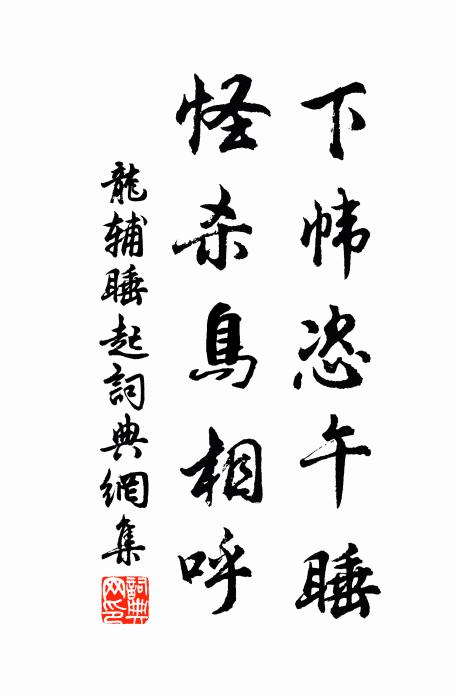 下帏恣午睡
怪杀鳥相呼
龍辅睡起詞典網集
詞典
网印